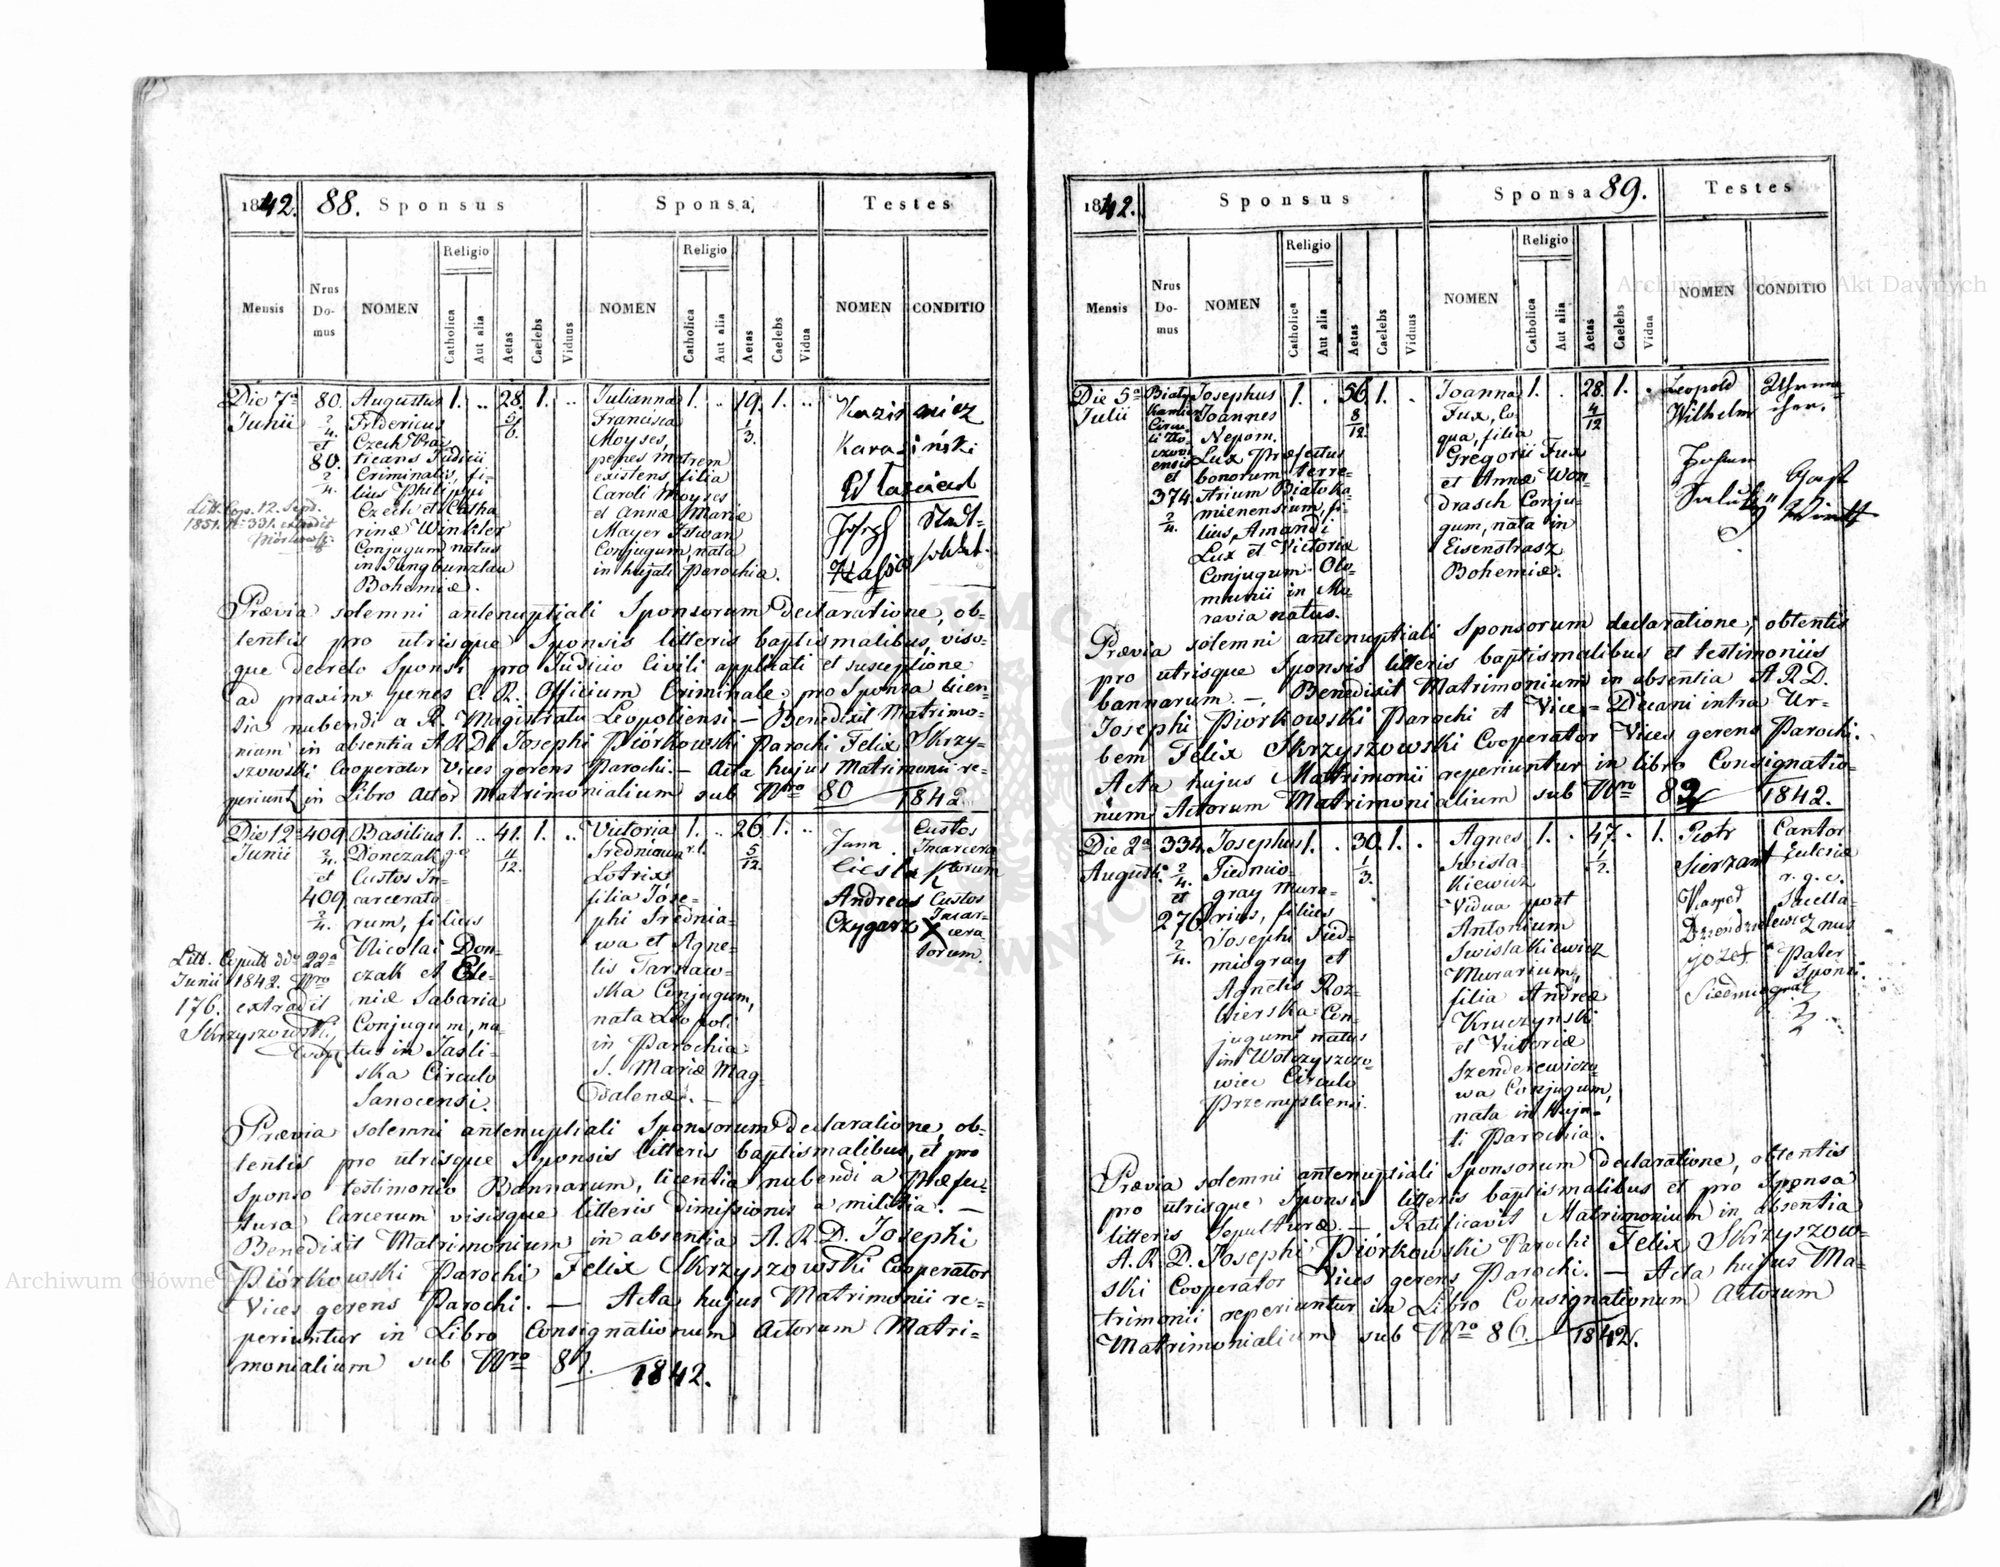 1842.
88.
Sponsus
Sponsa
Testes
Mensis
Nrus Do-mus
NOMEN
Religio
Catholica
Aut alia
Aetas
Caelebs
Viduus
NOMEN
Religio
Catholica
Aut alia
Aetas
Caelebs
Vidua
NOMEN
CONDITIO
Die 7a
Junii
80.
2/4.
et
80.
2/4.
Augustus
Fridericus
Czech Prac
ticans Judicii
Criminalis, fi-
lius Philippi
Czech et Catha
rinæ Winkler
Conjugum natus
in Jungbunzlau
Bohemiæ.
1.
..
28.
5/6.
1.
..
Julianna
Francisca
Moyses,
penes matrem
existens, filia
Caroli Moyses
et Annæ Mariæ
Mayer Istwan
Conjugum, nata
in hujati Parochia.
1.
..
19.
1/3.
1.
..
Kazimierz
Karasiński
Joseph
Stadt-
Litt. Cop. 12. Sept.
1851. N. 331. extradit
Piórkowski
Prævia solemni antenuptiali Sponsorum declaratione, ob-
tentis pro utrisque Sponsis litteris baptismalibus, viso-
que decreto Sponsi pro Judicio Civili applicati et susceptione
ad praxim penes C. R. Officium Criminale; pro Sponsa licen-
tia nubendi a R. Magistratu Leopoliensi. — Benedixit Matrimo-
nium in absentia A. R. D. Josephi Piórkowski Parochi Felix Skrzy-
szowski Cooperator Vices gerens Parochi. — Acta hujus Matrimonii re-
periunt in Libro Actor Matrimonialium sub Nro 80 1842.
Die 12a
Junii
409
2/4.
et
409
2/4.
Basilius
Donczak g.c.
Custos In-
carcerato-
rum, filius
Nicolai Don-
czak et Ele-
niæ Sabaria
Conjugum, na-
tus in Jasli-
ska Circulo
Sanocensi.
1.
..
41.
4/12.
1.
..
Victoria
Średniawa r.l.
Lotrix
filia Jose-
phi Srednia-
wa et Agne-
tis Tarnaw-
ska Conjugum,
nata Leopoli
in Parochia
S. Mariæ Mag-
dalenæ. —
1.
..
26
5/12.
1.
..
Jann
Ciesla
Custos
Incarcera
torum
Andreas
Czygarz X
Custos
Incar-
cera
torum.
Litt. Copul. dio 22a
Junii 1842. Nro
176. extradit
Skrzyszowski
Coop
Prævia solemni antenuptiali Sponsorum declaratione, ob-
tentis pro utrisque Sponsis litteris baptismalibus, et pro
Sponso testimonio Bannarum, licentia nubendi a Præfec-
tura Carcerum visisque litteris dimissionis a militia. —
Benedixit Matrimonium in absentia A. R. D. Josephi
Piórkowski Parochi Felix Skrzyszowski Cooperator
Vices gerens Parochi. — Acta hujus Matrimonii re-
periuntur in Libro Consignationum Actorum Matri-
monialium sub Nro 81. 1842.
1842.
Sponsus
Sponsa
89.
Testes
Mensis
Nrus Do-mus
NOMEN
Religio
Catholica
Aut alia
Aetas
Caelebs
Viduus
NOMEN
Religio
Catholica
Aut alia
Aetas
Caelebs
Vidua
NOMEN
CONDITIO
Die 5a
Julii
Biały
Kamień
Circu-
li Zło
czovi
ensis
et
374
2/4.
Josephus
Joannes
Nepom.
Lux Præfectus
bonorum terre-
strium Białoka-
mienensium, fi-
lius Amandi
Lux et Victoriæ
Conjugum Olo-
mucii in Mo-
ravia natus.
1.
.
56
8/12.
1.
.
Joanna
Fux, Co-
qua, filia
Gregorii Fux
et Annæ Won-
drasch Conju-
gum, nata in
Eisenstrasz
Bohemiæ.
1.
.
28.
4/12
1.
.
Leopold
Wilhelm
Uhrma
cher.
Johan
Gast
Wirth
Prævia solemni antenuptiali Sponsorum declaratione, obtentis
pro utrisque Sponsis litteris baptismalibus et testimoniis
bannarum. —, Benedixit Matrimonium in absentia A. R. D.
Josephi Piorkowski Parochi et Vice-Decani intra Ur-
bem Felix Skrzyszowski Cooperator Vices gerens Parochi.
Acta hujus Matrimonii reperiuntur in libro Consignatio-
num Actorum Matrimonialium sub Nro 82 1842.
Die 2a
Augusti.
334.
2/4.
et
276
2/4.
Josephus
Siedmio-
gray mura-
rius, filius
Josephi Sied-
miogray et
Agnetis Roz-
bierska Con-
jugum natus
in Wołczyszczo
wice Circulo
Przemysliensi.
1.
.
30.
1/3.
1.
.
Agnes
Swista-
kiewicz
Vidua post
Antonium
Swistakiewicz
Murarium,
filia Andreæ
Kruczynski
et Victoriæ
Szenderewiczo
wa Conjugum,
nata in huja-
ti Parochia.
1.
.
47.
1/2.
.
1.
Piotr
Sierzant
Cantor
Ecclesiæ
r. g. c.
Kasper
Dziendzielewicz
Sacella-
nus
Jozef
Siedmiogray
Pater
Sponsi.
Prævia solemni antenuptiali Sponsorum declaratione, obtentis
pro utrisque Sponsis litteris baptismalibus et pro Sponsa
litteris Sepulturæ. — Ratificavit Matrimonium in absentia
A. R. D. Josephi Piórkowski Parochi Felix Skrzyszow-
ski Cooperator Vices gerens Parochi. — Acta hujus Ma-
trimonii reperiuntur in Libro Consignationum Actorum
Matrimonialium sub Nro 86. 1842.
Archiwum Główne Akt Dawnych
Archiwum Główne